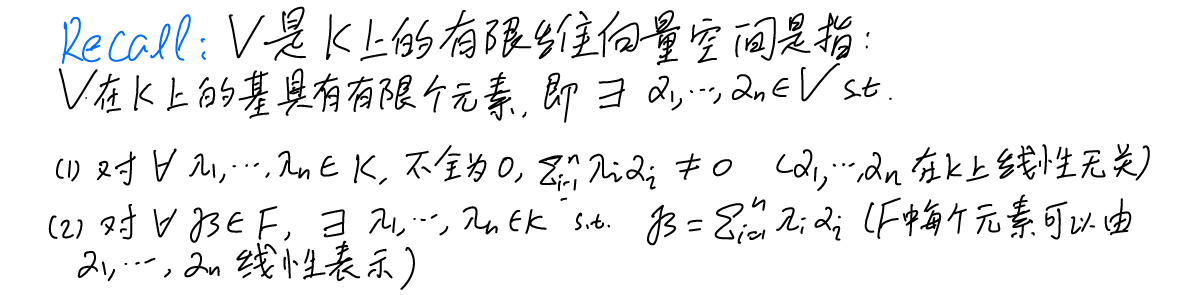 Recall: V是K上的有限维向量空间是指:
V在K上的基具有有限个元素, 即 ∃ α₁,⋯,αₙ∈V s.t.
(1) 对 ∀ λ₁,⋯,λₙ∈K, 不全为0, ∑ᵢ₌₁ⁿ λᵢαᵢ ≠ 0 (α₁,⋯,αₙ在K上线性无关)
(2) 对 ∀ β∈F, ∃ λ₁,⋯,λₙ∈K s.t. β = ∑ᵢ₌₁ⁿ λᵢαᵢ (F中每个元素可以由
α₁,⋯,αₙ 线性表示)